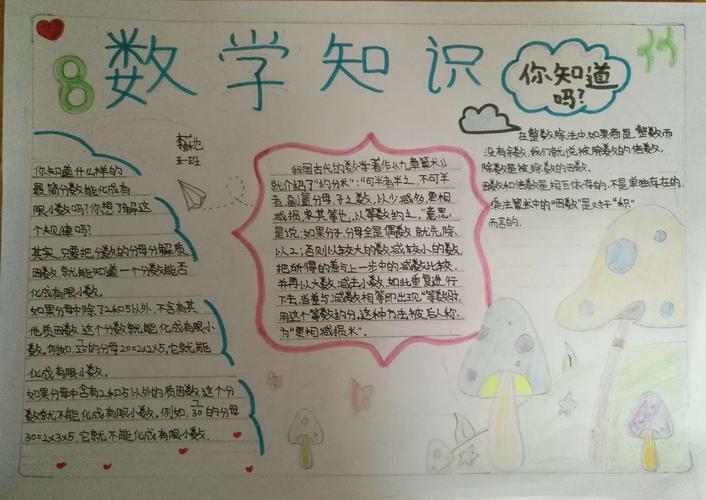 8 数学知识
你知道
吗?
五一班
你知道什么样的
最简分数能化成有
限小数吗?你想了解这
个规律吗?
其实,只要把分数的分母分解质
因数,就能知道一个分数能否
化成有限小数。
如果分母中除了2和5以外,不含有其
他质因数,这个分数就能化成有限小
数。例如, 的分母20=2×2×5,它就能
化成有限小数。
如果分母中含有2和5以外的质因数,这个分
数就不能化成有限小数。例如,7/30的分母
30=2×3×5,它就不能化成有限小数.
我国古代的数学著作《九章算术》
就介绍了"约分术":"可半者半之,不可半
者,副置分母、子之数,以少减多,更相
减损,求其等也,以等数约之。"意思
是说:如果分子、分母全是偶数,就先除
以2;否则以较大的数减较小的数,
把所得的差与上一步中的减数比较,
并再以大数减去小数,如此重复进行
下去,当差与减数相等即出现"等数"时,
用这个等数约分,这种方法被后人称
为"更相减损术".
在整数除法中,如果商是整数而
没有余数,我们就说被除数是除数的倍数,
除数是被除数的因数。
因数和倍数是相互依存的,不是单独存在的.
乘法算术中的"因数"是对于"积"
而言的.